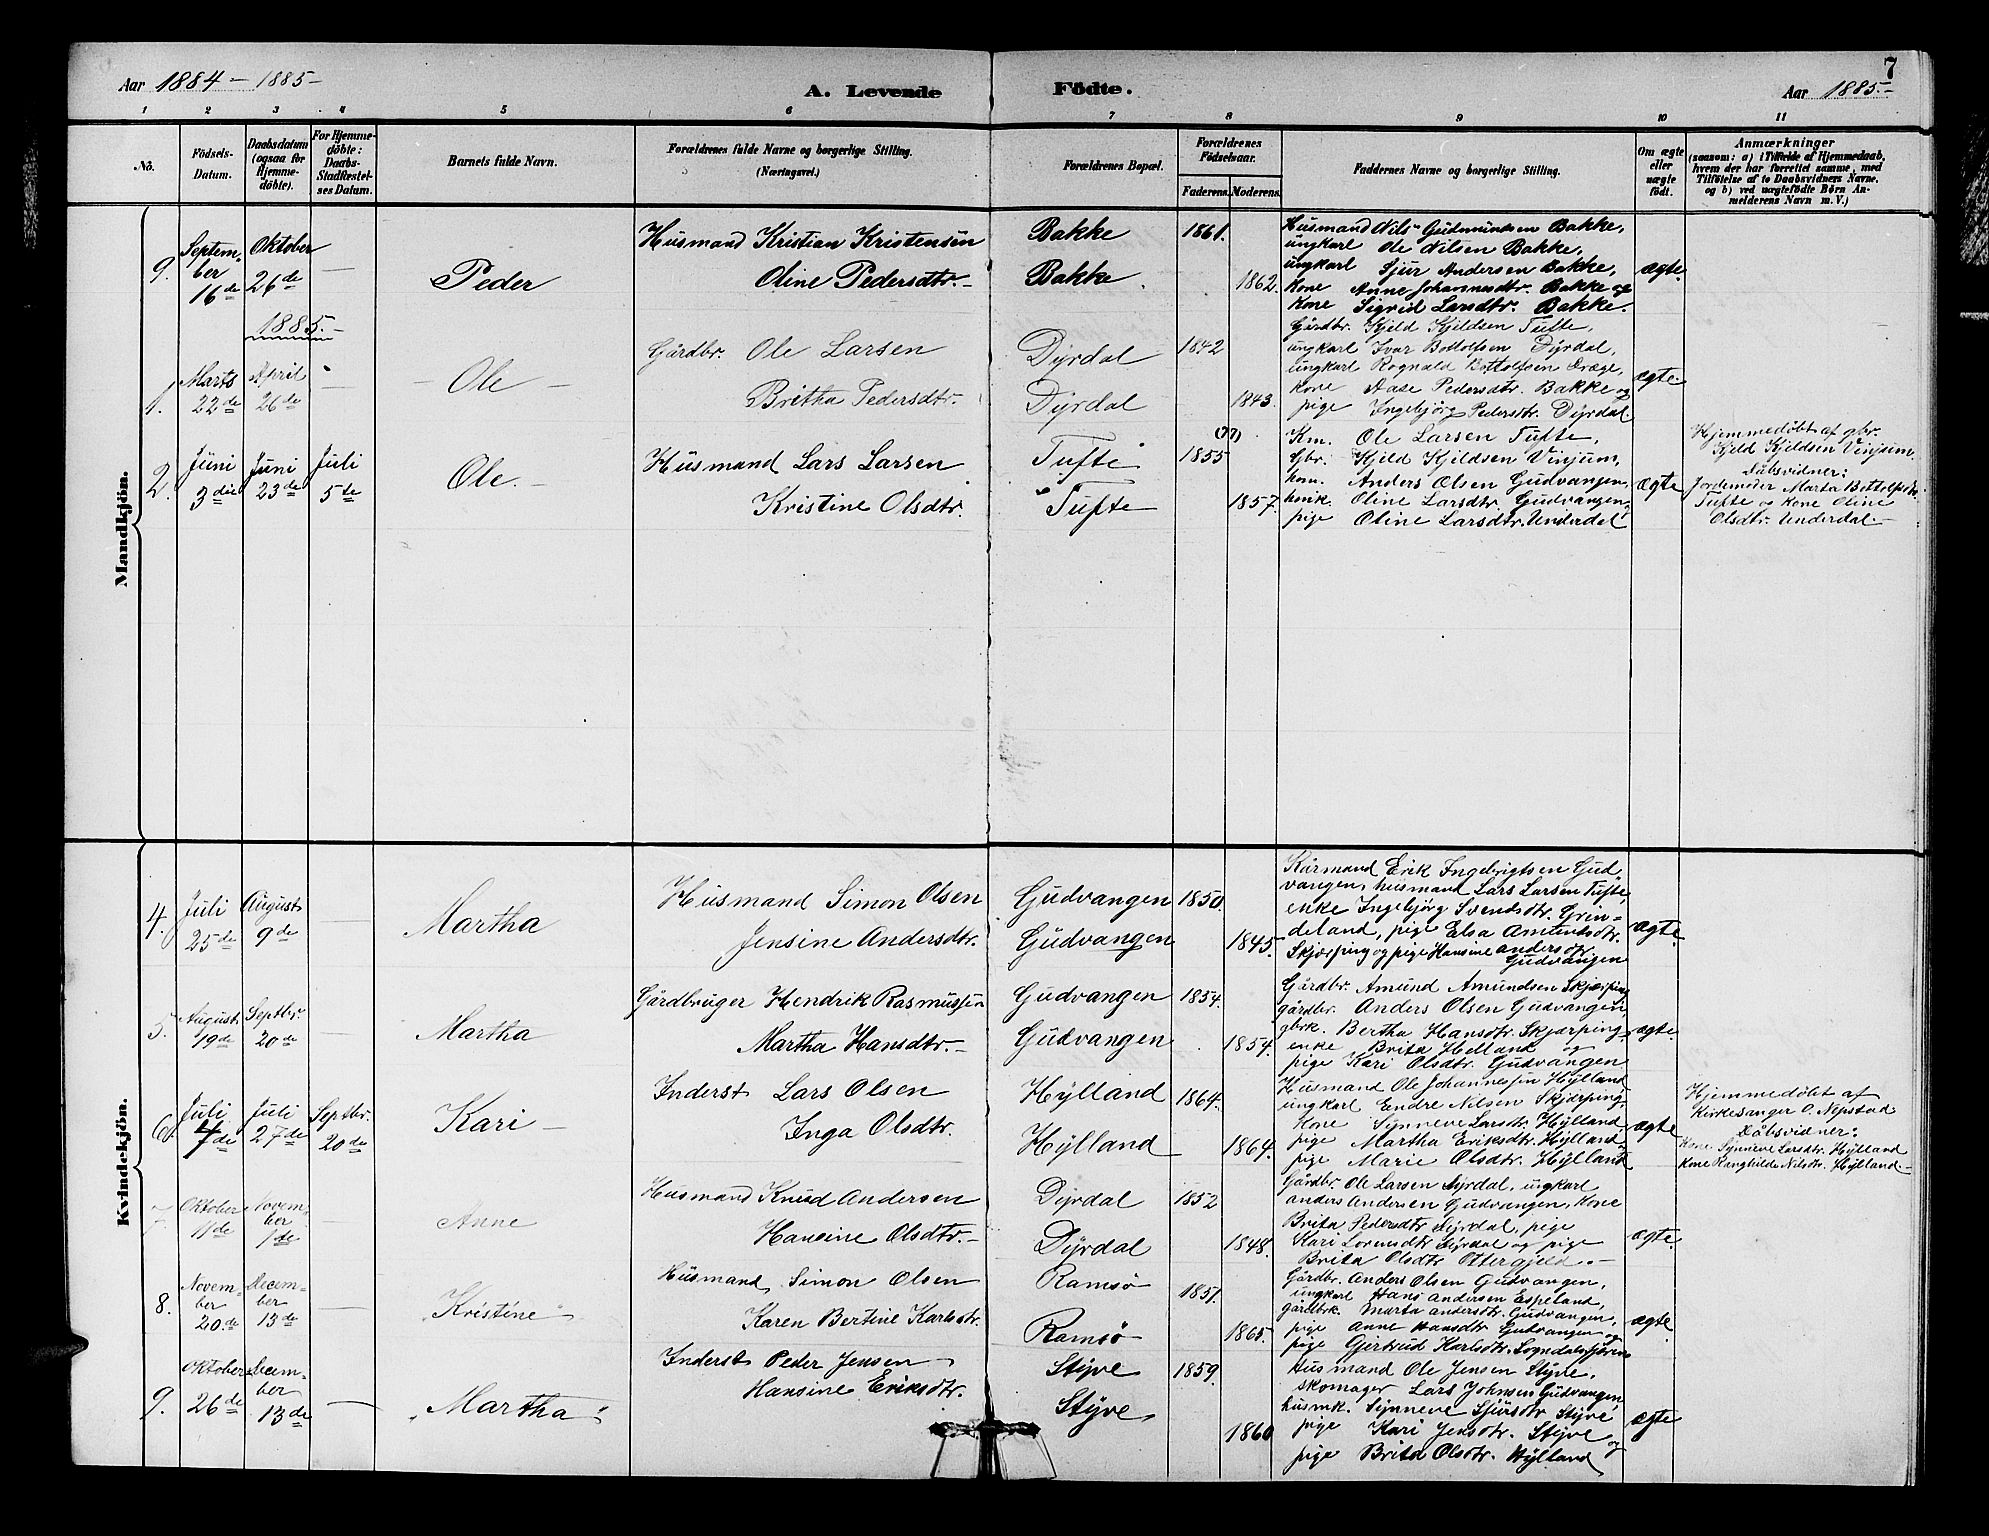 7
Aar 1884 – 1885 –
A. Levende Födte.
Aar 1885. –
1 2 3 4 5 6 7 8 9 10 11
No.
Födsels-
Datum.
Daabsdatum
(ogsaa for
Hjemme-
döbte).
For Hjemme-
döbte:
Daabs-
Stadfæstel-
ses Datum.
Barnets fulde Navn.
Forældrenes fulde Navne og borgerlige Stilling.
(Næringsvei.)
Forældrenes Bopæl.
Forældrenes
Födselsaar.
Faderens. Moderens.
Faddernes Navne og borgerlige Stilling.
Om ægte
eller
uægte
födt.
Anmærkninger
(saasom: a) i Tilfælde af Hjemmedaab,
hvem der har forrettet samme, med
Tilföielse af to Daabsvidners Navne,
og b) ved uægtefödte Börn An-
melderens Navn m. V.)
Mandkjön.
9.
Septem-
ber
16 de
Oktober
26 de
—
Peder
Husmand Kristian Kristensen
Oline Pedersdtr. –
Bakke
Bakke
1861.
1862.
Husmand Nils Gudmundsen Bakke,
ungkarl Ole Nilsen Bakke,
ungkarl Sjur Andersen Bakke,
kone Anne Johannesdtr. Bakke og
kone Sigrid Larsdtr. Bakke.
ægte.
1885. –
1.
Marts
22 de
April
26 de
—
– Ole –
Gårdbr. Ole Larsen
Britha Pedersdtr.
Dyrdal
Dyrdal
1842
1843.
Gårdbr. Kjeld Kjeldsen Tufte,
ungkarl Ivar Bottolfsen Dyrdal,
ungkarl Rognald Bottolfsen Dræge,
kone Aase Pedersdtr. Bakke og
pige Ingebjörg Pedersdtr. Dyrdal.
ægte.
2.
Juni
3 die
Juni
23 de
Juli
5 te
Ole. –
Husmand Lars Larsen
Kristine Olsdtr.
Tufte
Tufte
(??)
1855
1857.
Km. Ole Larsen Tufte,
Gbr. Kjeld Kjeldsen Vinjum,
hsm. Anders Olsen Gudvangen,
hsmk. Oline Larsdtr. Gudvangen,
pige Oline Larsdtr. Underdal
ægte
Hjemmedøbt af gbr.
Kjeld Kjeldsen Vinjum.
Dåbsvidner:
Jordemoder Marta Bottolfsdtr.
Tufte og kone Oline
Olsdtr. Underdal. –
Kvindekjön.
4.
Juli
25 de
August
9 de
—
Martha
Husmand Simon Olsen
Jensine Andersdtr.
Gudvangen
Gudvangen
1850.
1845.
Kårmand Erik Ingebrigtsen Gud-
vangen, husmand Lars Larsen Tufte,
enke Ingebjörg Svendsdtr. Gren-
deland, pige Elsa Amundsdtr.
Skjærping og pige Hansine Andersdtr.
Gudvangen
ægte.
5.
August
19 de
Septbr.
20 de
—
Martha
Gårdbruger Hendrik Rasmussen
Martha Hansdtr. –
Gudvangen
Gudvangen
1854.
1854.
Gårdbr. Amund Amundsen Skjærping,
gårdbr. Anders Olsen Gudvangen,
gbrk. Bertha Hansdtr. Skjærping,
enke Brita Helland og
pige Kari Olsdtr. Gudvangen
ægte.
6.
Juli
7 de
Juli
27 de
Septbr.
20 de
Kari –
Inderst Lars Olsen
Inga Olsdtr.
Hylland
Hylland
1864.
1864.
Husmand Ole Johannessen Hylland
ungkarl Endre Nilsen Skjerping,
Kone Synneve Larsdtr. Hylland,
pige Martha Eriksdtr. Hylland
pige Marie Olsdtr. Hylland
ægte
Hjemmedøbt af
Kirkesanger O. Nepstad
Dåbsvidner:
Kone Synneve Larsdtr. Hylland
Kone Ranghilde Nilsdtr. Hylland –
7.
Oktober
11 de
Novem-
ber
1 ste
—
Anne
Husmand Knud Andersen
Hansine Olsdtr. –
Dyrdal
Dyrdal
1852
1848.
Gårdbr. Ole Larsen Dyrdal, ungkarl
Anders Andersen Gudvangen, Kone
Brita Pedersdtr Dyrdal, pige
Kari Dyrdal og pige
Brita Olsdtr Ottergjeld. –
ægte.
8.
Novem-
ber
20. de
Decem-
ber
13 de
—
Kristine
Husmand Simon Olsen
Karen Bertine Karlsdtr.
Ramsö
Ramsö
1851.
1865.
Gårdbr. Anders Olsen Gudvangen,
ungkarl Hans Andersen Espeland,
gårdbrk. Marta Andersdtr. Gudvangen,
pige Anne Hansdtr. Gudvangen og
pige Gjertrud Karlsdtr. Sogndalsfjøren
ægte
9.
Oktober
26 de
Decem-
ber
13 de
—
„Martha“
Inderst Peder Jensen
Hansine Eriksdtr.
Styve
Styve
1859.
1860
Husmand Ole Jensen Styve,
skomager Lars Johnsen Gudvangen,
husmk. Synneve Sjursdtr Styve,
pige Kari Jensdtr. Styve og
pige Brita Olsdtr. Hylland
ægte